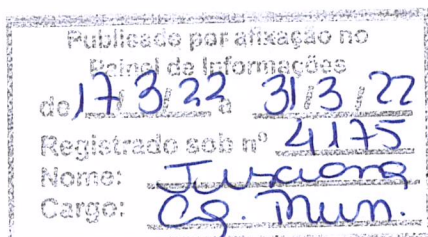 Publicado por afixação no
Painel de Informações
de 17/3/22 a 31/3/22
Registrado sob nº 4175
Nome: Jusciona
Cargo: Ag. Mun.